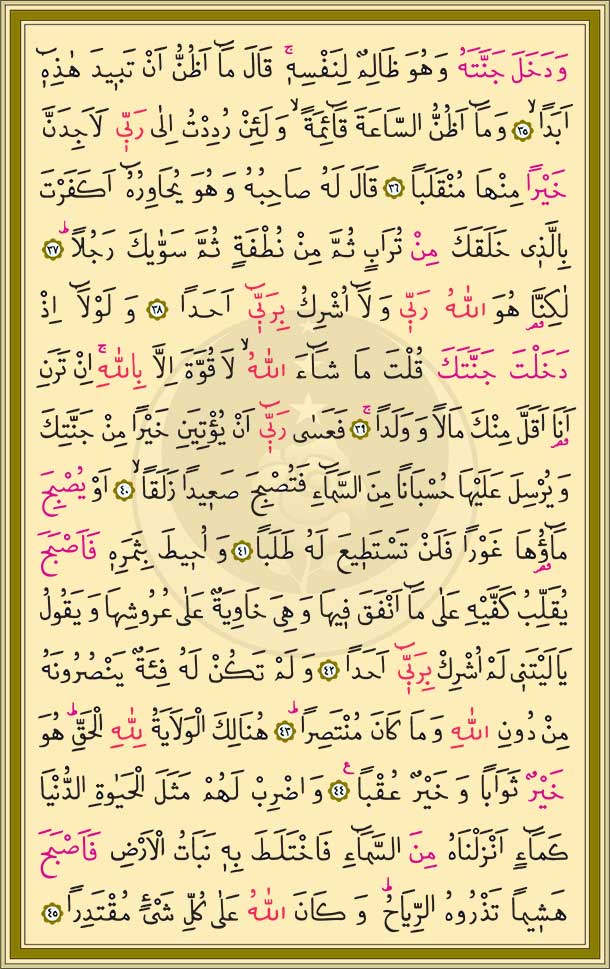 وَدَخَلَ جَنَّتَهُ وَهُوَ ظَالِمٌ لِنَفْسِهٖۚ قَالَ مَٓا اَظُنُّ اَنْ تَب۪يدَ هٰذِهٖٓ
اَبَداًۙ ﴿٣٥﴾ وَمَٓا اَظُنُّ السَّاعَةَ قَٓائِمَةًۙ وَلَئِنْ رُدِدْتُ اِلٰى رَبّ۪ي لَاَجِدَنَّ
خَيْراً مِنْهَا مُنْقَلَباً ﴿٣٦﴾ قَالَ لَهُ صَاحِبُهُ وَهُوَ يُحَاوِرُهُٓ اَكَفَرْتَ
بِالَّذ۪ي خَلَقَكَ مِنْ تُرَابٍ ثُمَّ مِنْ نُطْفَةٍ ثُمَّ سَوّٰيكَ رَجُلاًۜ ﴿٣٧﴾
لٰكِنَّا۬ هُوَ اللّٰهُ رَبّ۪ي وَلَٓا اُشْرِكُ بِرَبّ۪ٓي اَحَداً ﴿٣٨﴾ وَلَوْلَٓا اِذْ
دَخَلْتَ جَنَّتَكَ قُلْتَ مَا شَٓاءَ اللّٰهُۙ لَا قُوَّةَ اِلَّا بِاللّٰهِۚ اِنْ تَرَنِ
اَنَا۬ اَقَلَّ مِنْكَ مَالاً وَوَلَداًۚ ﴿٣٩﴾ فَعَسٰى رَبّ۪ٓي اَنْ يُؤْتِيَنِ خَيْراً مِنْ جَنَّتِكَ
وَيُرْسِلَ عَلَيْهَا حُسْبَاناً مِنَ السَّمَٓاءِ فَتُصْبِحَ صَع۪يداً زَلَقاًۙ ﴿٤٠﴾ اَوْ يُصْبِحَ
مَٓاؤُ۬هَا غَوْراً فَلَنْ تَسْتَط۪يعَ لَهُ طَلَباً ﴿٤١﴾ وَاُح۪يطَ بِثَمَرِهٖ فَاَصْبَحَ
يُقَلِّبُ كَفَّيْهِ عَلٰى مَٓا اَنْفَقَ ف۪يهَا وَهِيَ خَاوِيَةٌ عَلٰى عُرُوشِهَا وَيَقُولُ
يَالَيْتَن۪ي لَمْ اُشْرِكْ بِرَبّ۪ٓي اَحَداً ﴿٤٢﴾ وَلَمْ تَكُنْ لَهُ فِئَةٌ يَنْصُرُونَهُ
مِنْ دُونِ اللّٰهِ وَمَا كَانَ مُنْتَصِراًۜ ﴿٤٣﴾ هُنَالِكَ الْوَلَايَةُ لِلّٰهِ الْحَقِّۜ هُوَ
خَيْرٌ ثَوَاباً وَخَيْرٌ عُقْباً۟ ﴿٤٤﴾ وَاضْرِبْ لَهُمْ مَثَلَ الْحَيٰوةِ الدُّنْيَا
كَمَٓاءٍ اَنْزَلْنَاهُ مِنَ السَّمَٓاءِ فَاخْتَلَطَ بِهٖ نَبَاتُ الْاَرْضِ فَاَصْبَحَ
هَش۪يماً تَذْرُوهُ الرِّيَاحُۜ وَكَانَ اللّٰهُ عَلٰى كُلِّ شَيْءٍ مُقْتَدِراً ﴿٤٥﴾